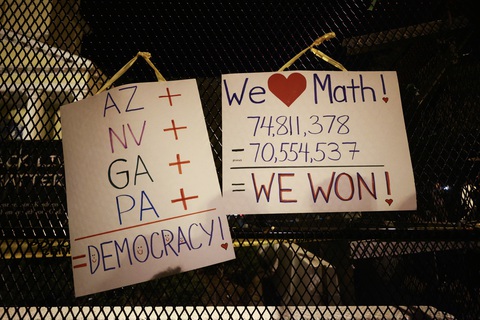 AZ +
NV +
GA +
PA +
= DEMOCRACY!
We ❤ Math!
74,811,378
- 70,554,537
= WE WON!